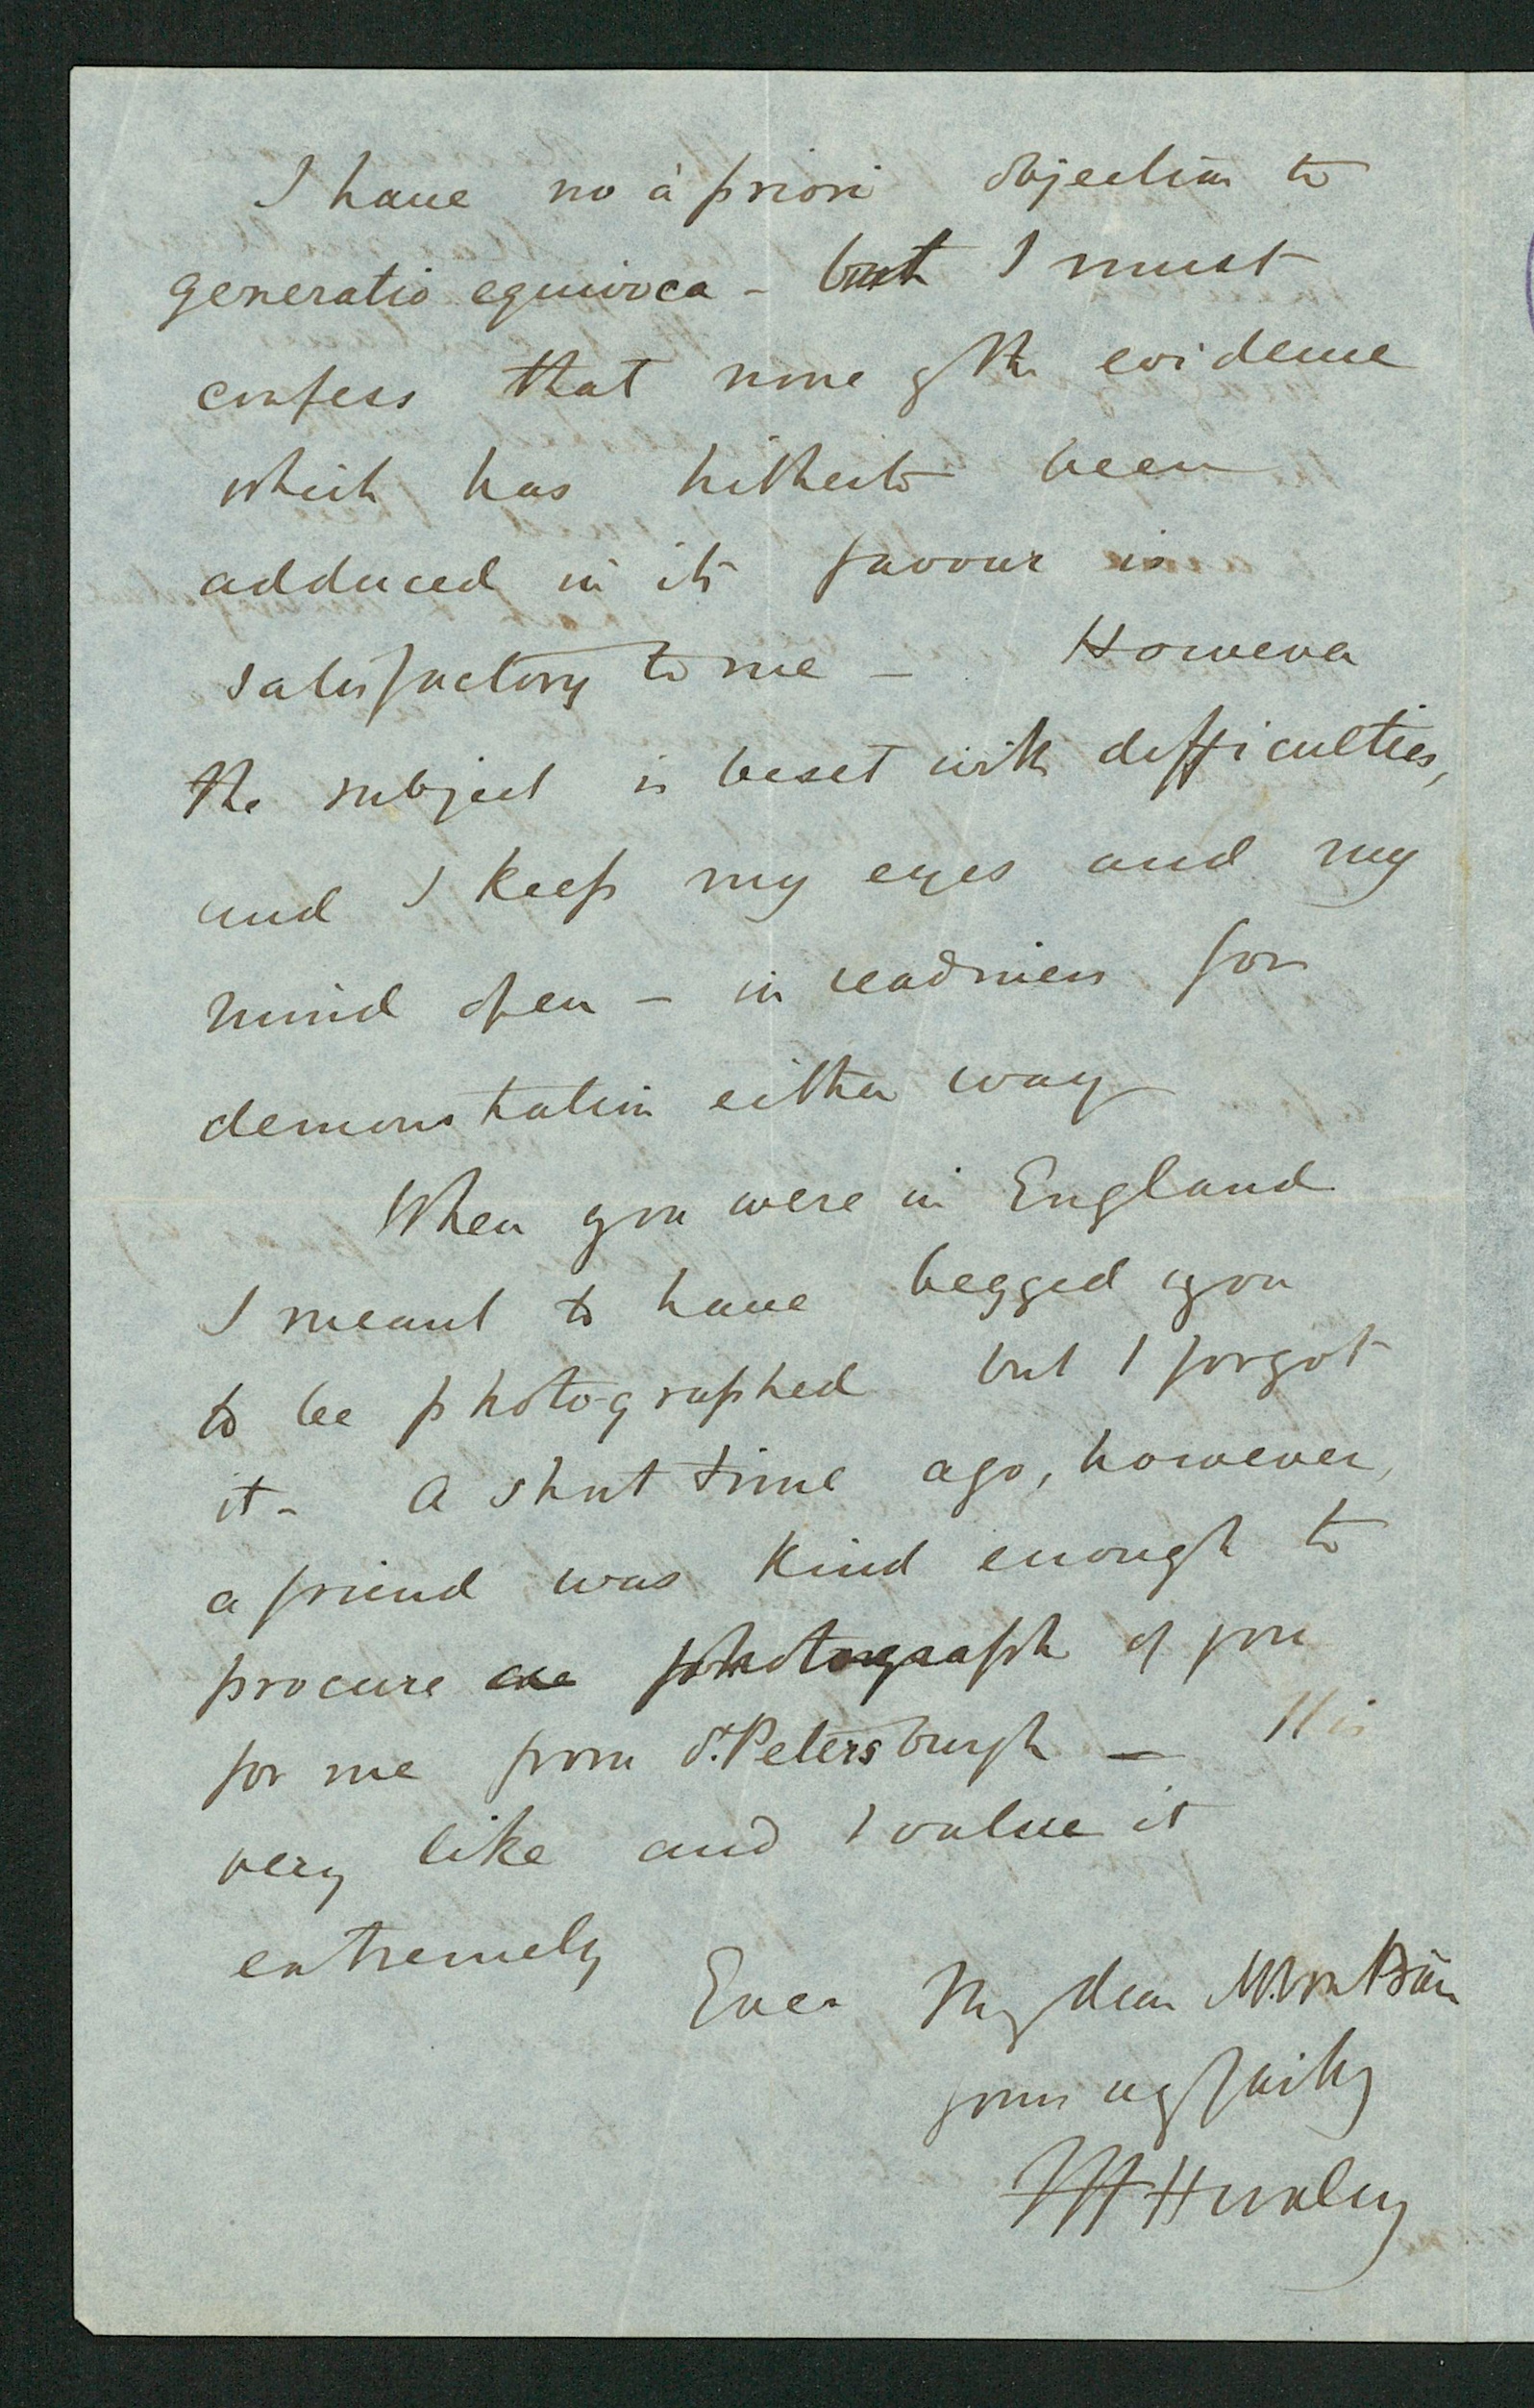 I have no à priori objection to
generatio equivoca - but I must
confess that none of the evidence
which has hitherto been
adduced in its favour is
satisfactory to me - However
the subject is beset with difficulties,
and I keep my eyes and my
mind open - in readiness for
demonstration either way
When you were in England
I meant to have begged you
to be photographed but I forgot
it - A short time ago, however,
a friend was kind enough to
procure a photograph of you
for me from St. Petersburgh - It is
very like and I value it
extremely
Ever My dear M. Von Bär
yours very faithy
TH Huxley